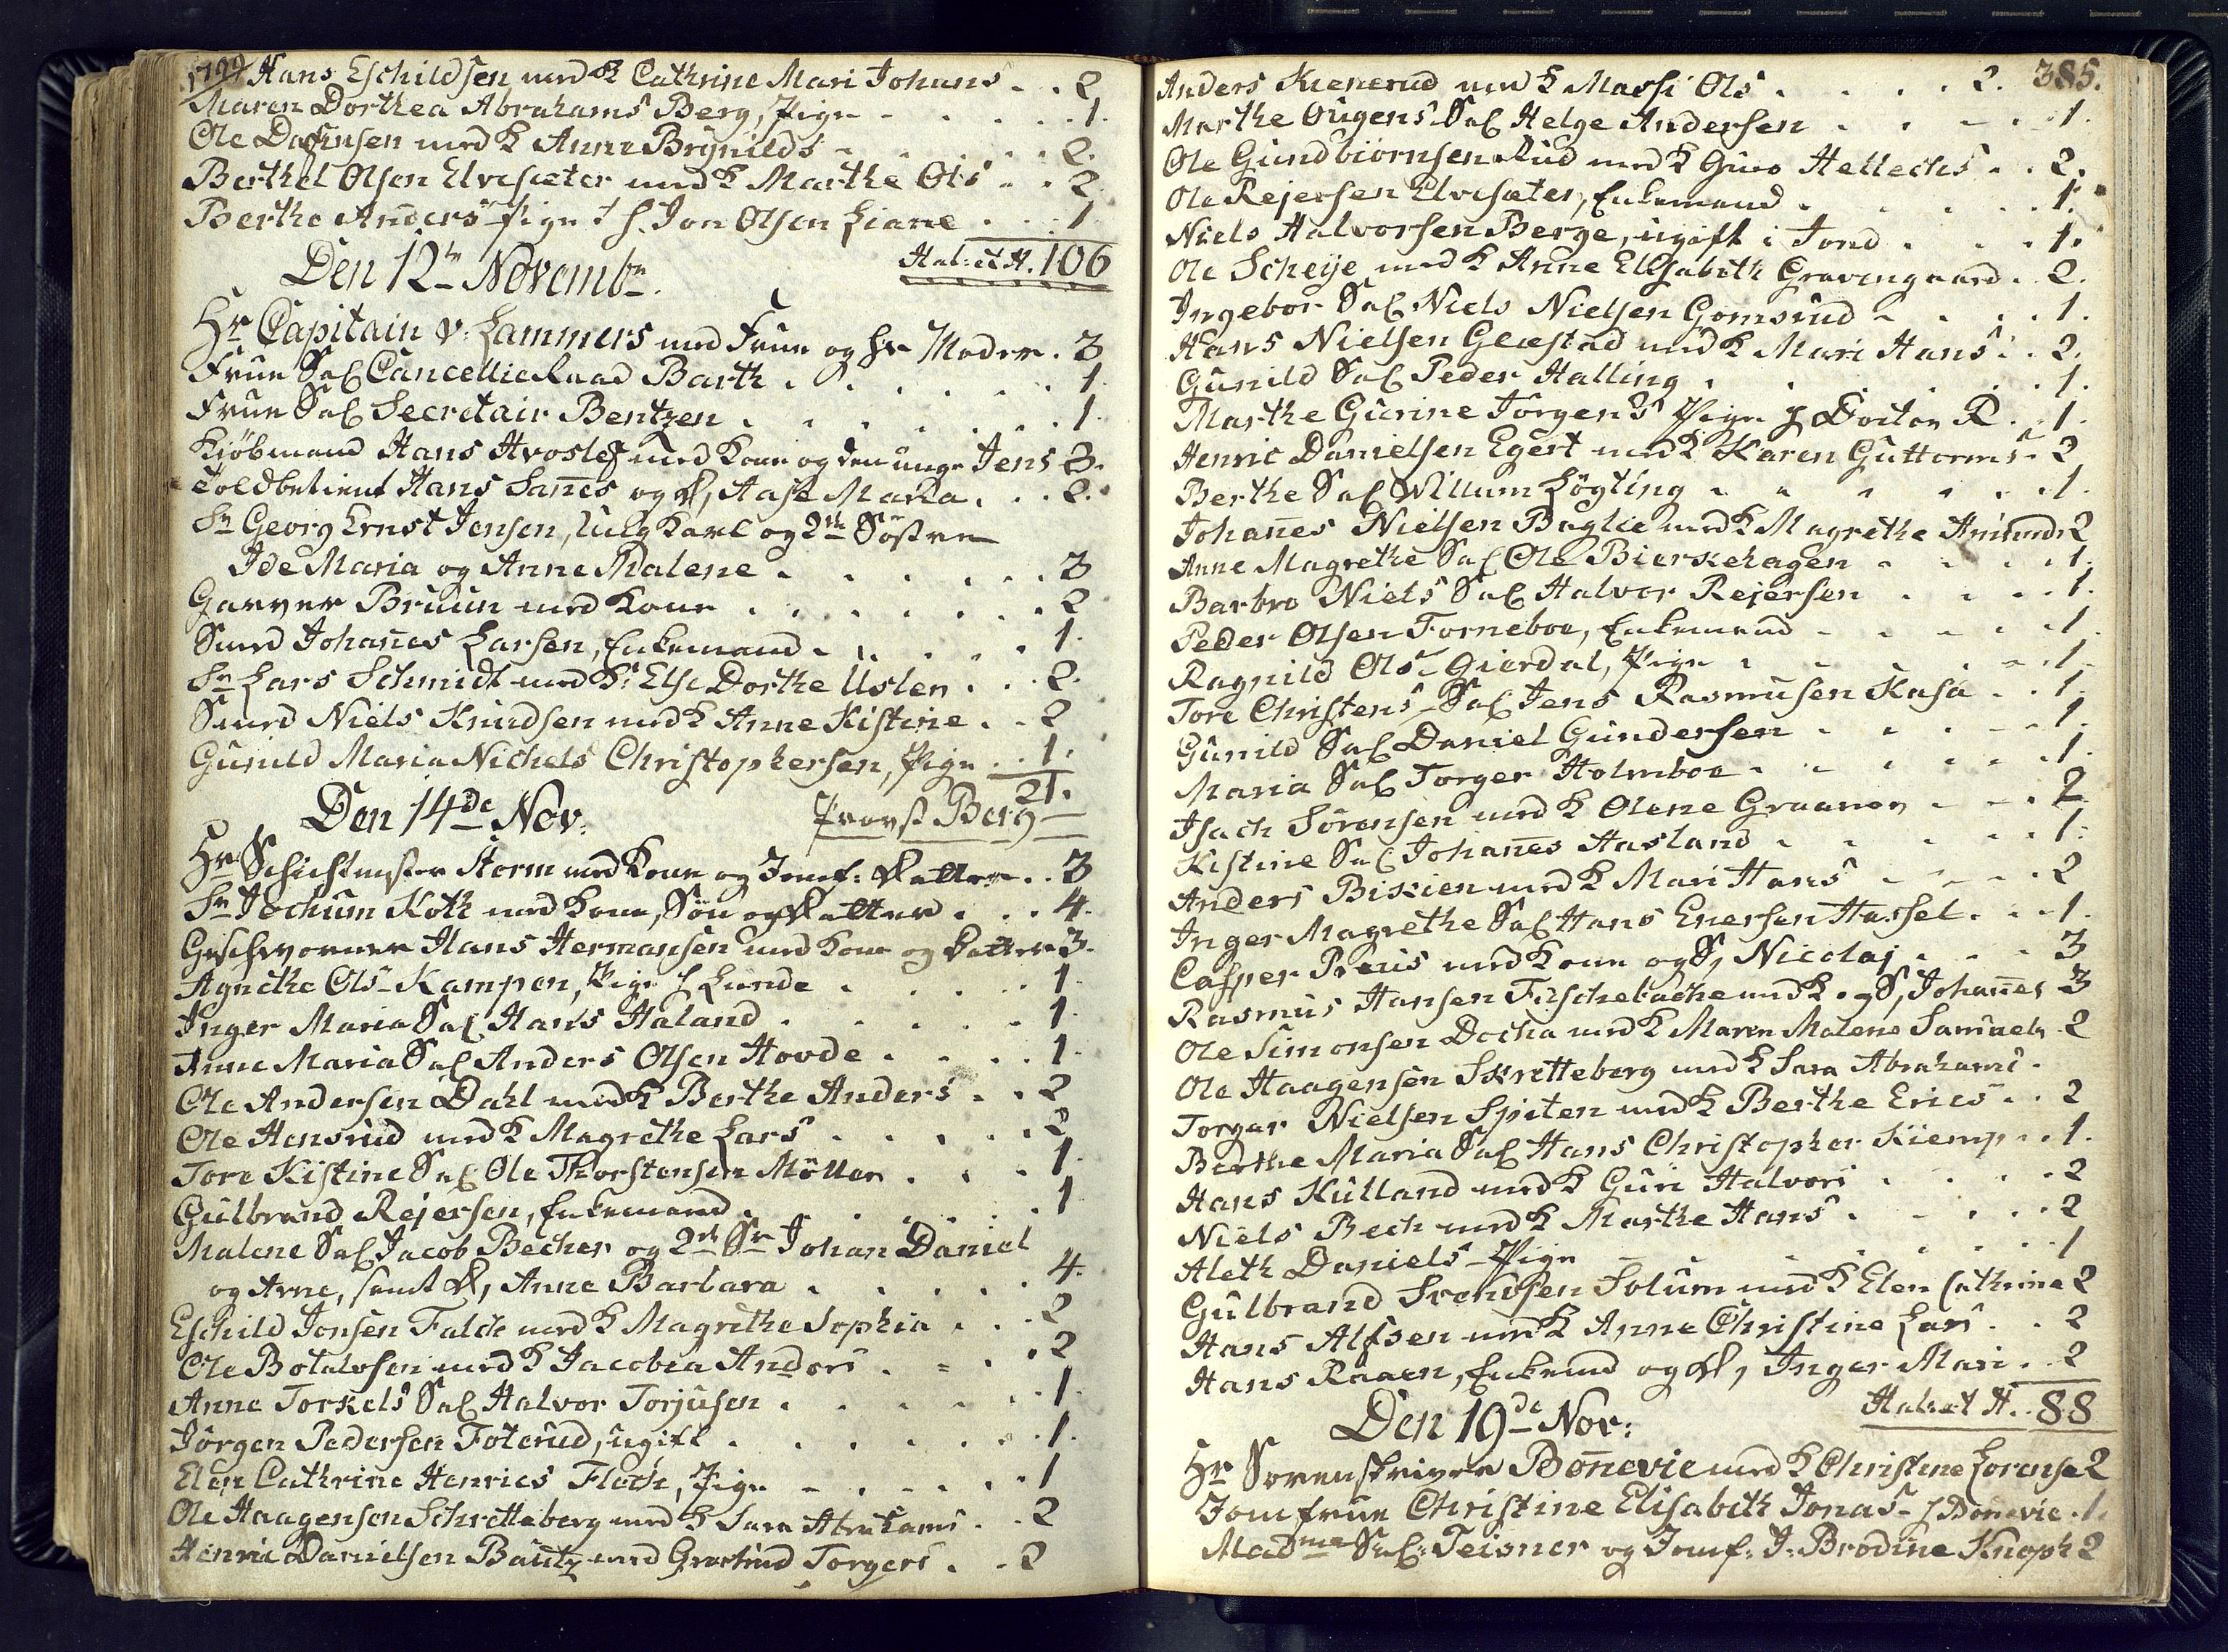 1799 Hans Eschildsen med K Cathrine Mari Johans . . 2
Maren Dorthea Abrahams Berg, Pige . . . . . 1.
Ole Dafinsen med K Anne Brynilds . . . . 2.
Berthel Olsen Elvesæter med K Marthe Ols . . 2
Berthe Anders Pige f h. Jon Olsen Liane . . . 1
Den 12te Novembr. Hab: et H. 106
Hr Capitain v. Lammers med Frue og hs Moder . 3
Frue Sal Cancellie Raad Barth . . . . . . 1
Frue Sal Secretair Bentzen . . . . . . . 1.
Kiöbmand Hans Hvoslef med Kone og den unge Jens 3.
Toldbetient Hans Sanes og D, Aase Maria . . . 2.
Sr Georg Ernst Jensen, Ungkarl og 2de Söstre
Ide Maria og Anne Malene . . . . . . 3
Garver Bruun med Kone . . . . . . . 2
Smed Johanes Larsen, Enkemand . . . . . 1.
Sr Lars Schmidt med K: Else Dorthe Uslen . . . 2.
Smed Niels Knudsen med K Anne Kistine . . . 2
Gunild Maria Nichels Christophersen, Pige . . 1.
21.
Den 14de Nov: Provst Berg
Hr Schichtmester Storm med Kone og Jomf: Datter . . 3
Sr Jochum Koth med Kone, Sön og Datter . . . 4.
Geschworner Hans Hermansen med Kone og Datter 3.
Agnethe Ols Kampen, Pige f Lunde . . . . . 1.
Inger Maria Sal Hans Haland . . . . . . 1.
Anne Maria Sal Anders Olsen Hovde . . . . 1.
Ole Andersen Dahl med K Berthe Anders . . 2
Ole Hensrud med K Magrethe Lars . . . . . 2
Tore Kistine Sal Ole Thorstensen Möller . . . 1.
Gulbrand Rejersen, Enkemand . . . . . . 1
Malene Sal Jacob Becher og 2de Sr Johan Daniel
og Arne, samt D, Anne Barbara . . . . . 4.
Eschild Jonsen Falck med K Magrethe Sophia . . . 2
Ole Botolvsen med K Jacobea Anders . . . . 2
Anne Torkels Sal Halvor Torjusen . . . . . 1.
Jörgen Pedersen Foterud, ugift . . . . . . 1.
Elen Cathrine Henrics Floch, Pige . . . . . 1
Ole Haagensen Schretteberg med K Sara Abrahams . . 2
Henric Danielsen Bautz med Giertrud Torgers . . 2
385.
Anders Kienerud med K Massi Ols . . . . . 2.
Marthe Ougens Sal Helge Andersen . . . . 1.
Ole Gundbiornsen Rud med K Guro Hellechs . . 2.
Ole Rejersen Elvesæter, Enkemand . . . . . 1.
Niels Halvorsen Berge, ugift i Jond . . . . 1.
Ole Scheije med K Anne Elisabeth Gravengaard . 2.
Ingebor Sal Niels Nielsen Gomsrud . . . . 1.
Hans Nielsen Gleestad med K Mari Hans . . 2.
Gunild Sal Peder Halling . . . . . . 1.
Marthe Gurine Jörgens Pige f Doctor R . . 1.
Henric Danielsen Egert med K Karen Guttorms . 2
Berthe Sal Willum Högting . . . . . . 1.
Johanes Nielsen Buglie med K Magrethe Amunds 2
Anne Magrethe Sal Ole Bierkehagen . . . . 1.
Barbro Niels Sal Halvor Rejersen . . . . 1.
Peder Olsen Torneboe, Enkemand . . . . . 1
Ragnild Ols Gierdal, Pige . . . . . . 1.
Tore Christens Sal Jens Rasmusen Kasa . . 1.
Gunild Sal Daniel Gundersen . . . . . 1.
Maria Sal Torger Holmboe . . . . . . 1.
Isach Sörensen med K Olene Graanen . . . 2
Kistine Sal Johanes Hasland . . . . . 1.
Anders Biskien med K Mari Hans . . . . 2
Inger Magrethe Sal Hans Enersen Hassel . . . 1.
Casper Preus med Kone og S, Nicolaj . . . 3
Rasmus Hansen Fischebache med K og S, Johannes 3
Ole Simonsen Docka med K Maren Malene Samuels 2
Ole Haagensen Skretteberg med K Sara Abrahams .
Torger Nielsen Spiten med K Berthe Erics . . 2
Berthe Maria Sal Hans Christopher Kiemp . . 1.
Hans Kulland med K Guri Halvors . . . . 2
Niels Bech med K Marthe Hans . . . . . 2
Aleth Daniels Pige . . . . . . 1
Gulbrand Svendsen Solum med K Elen Cathrine 2
Hans Alfsen med K Anne Christine Lars . . 2
Hans Raaen, Enkemd og D, Inger Mari . . 2
Den 19de Nov: Hab: et H. 88
Hr Sorenskriver Bonevie med K Christine Lorense 2
Jomfrue Christine Elisabeth Jonas f Bonevie . 1.
Madme Sal: Teisner og Jomf: J. Brodine Knoph 2